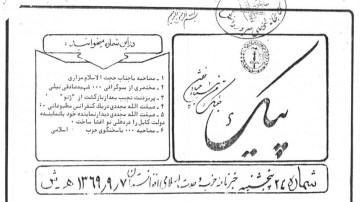 بسم الله الرحمن الرحیم
دراین شماره میخوانید:
۱ـ مصاحبه باجناب حجت الاسلام مزاری
۲ـ مختصری از بیوگرافی ۰۰۰ شهیدصادقی نیلی
۳ـ پریزدنت نجیب بعدازبازگشت از "ژنو"
۴ـ صبغت الله مجددی دریک کنفرانس مطبوعاتی:
۵ـ صبغت الله مجددی دیدارنماینده خودبانماینده دولت کابل را درده‌لی نو افشا ساخت
۶ـ مصاحبه ۰۰۰ باسخنگوی حزب اسلامی
پیک
شماره ۲۷ پنجشنبه خبرنامه حزب وحدت اسلامی افغانستان ۱۳۶۹٫۹٫۷ هـ ش